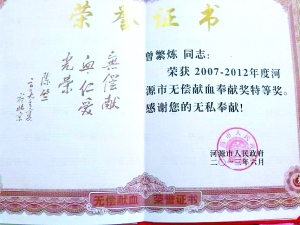 荣誉证书
無償献
血仁爱
光荣
曾繁炼 同志:
荣获2007-2012年度河
源市无偿献血奉献奖特等奖。
感谢您的无私奉献!
河源市人民政府
二〇一三年六月
无偿献血 荣誉证书